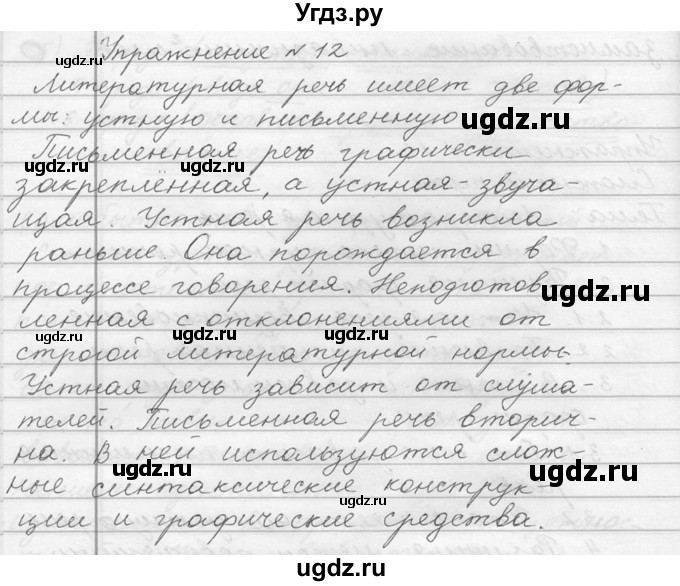 Угдз.ру
Упражнение №12
Литературная речь имеет две фор-
мы: устную и письменную
ugdz.ru
ugdz.ru
Письменная речь графически
закреплённая, а устная - звуча-
ugdz.ru
щая. Устная речь возникла
раньше. Она порождается в
ugdz.ru
процессе говорения. Неподготов
ugdz.ru
ленная с отклонениями от
ugdz.ru
ugdz.ru
строгой литературной нормы.
ugdz.ru
Устная речь зависит от слуша-
телей. Письменная речь вторич-
ugdz.ru
на. В ней используются слож-
ugdz.ru
ные синтаксические конструк-
ugdz.ru
ции и графические средства.
ugdz.ru